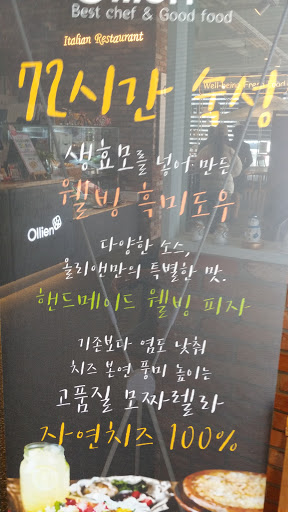 Ollien
Best chef & Good food
Italian Restaurant
72시간 숙성
생효모를 넣어 만든
웰빙 흑미도우
Ollien
다양한 소스,
올리앤만의 특별한 맛.
핸드메이드 웰빙 피자
기존보다 염도 낮춰
치즈 본연 풍미 높이는
고품질 모짜렐라
자연치즈 100%